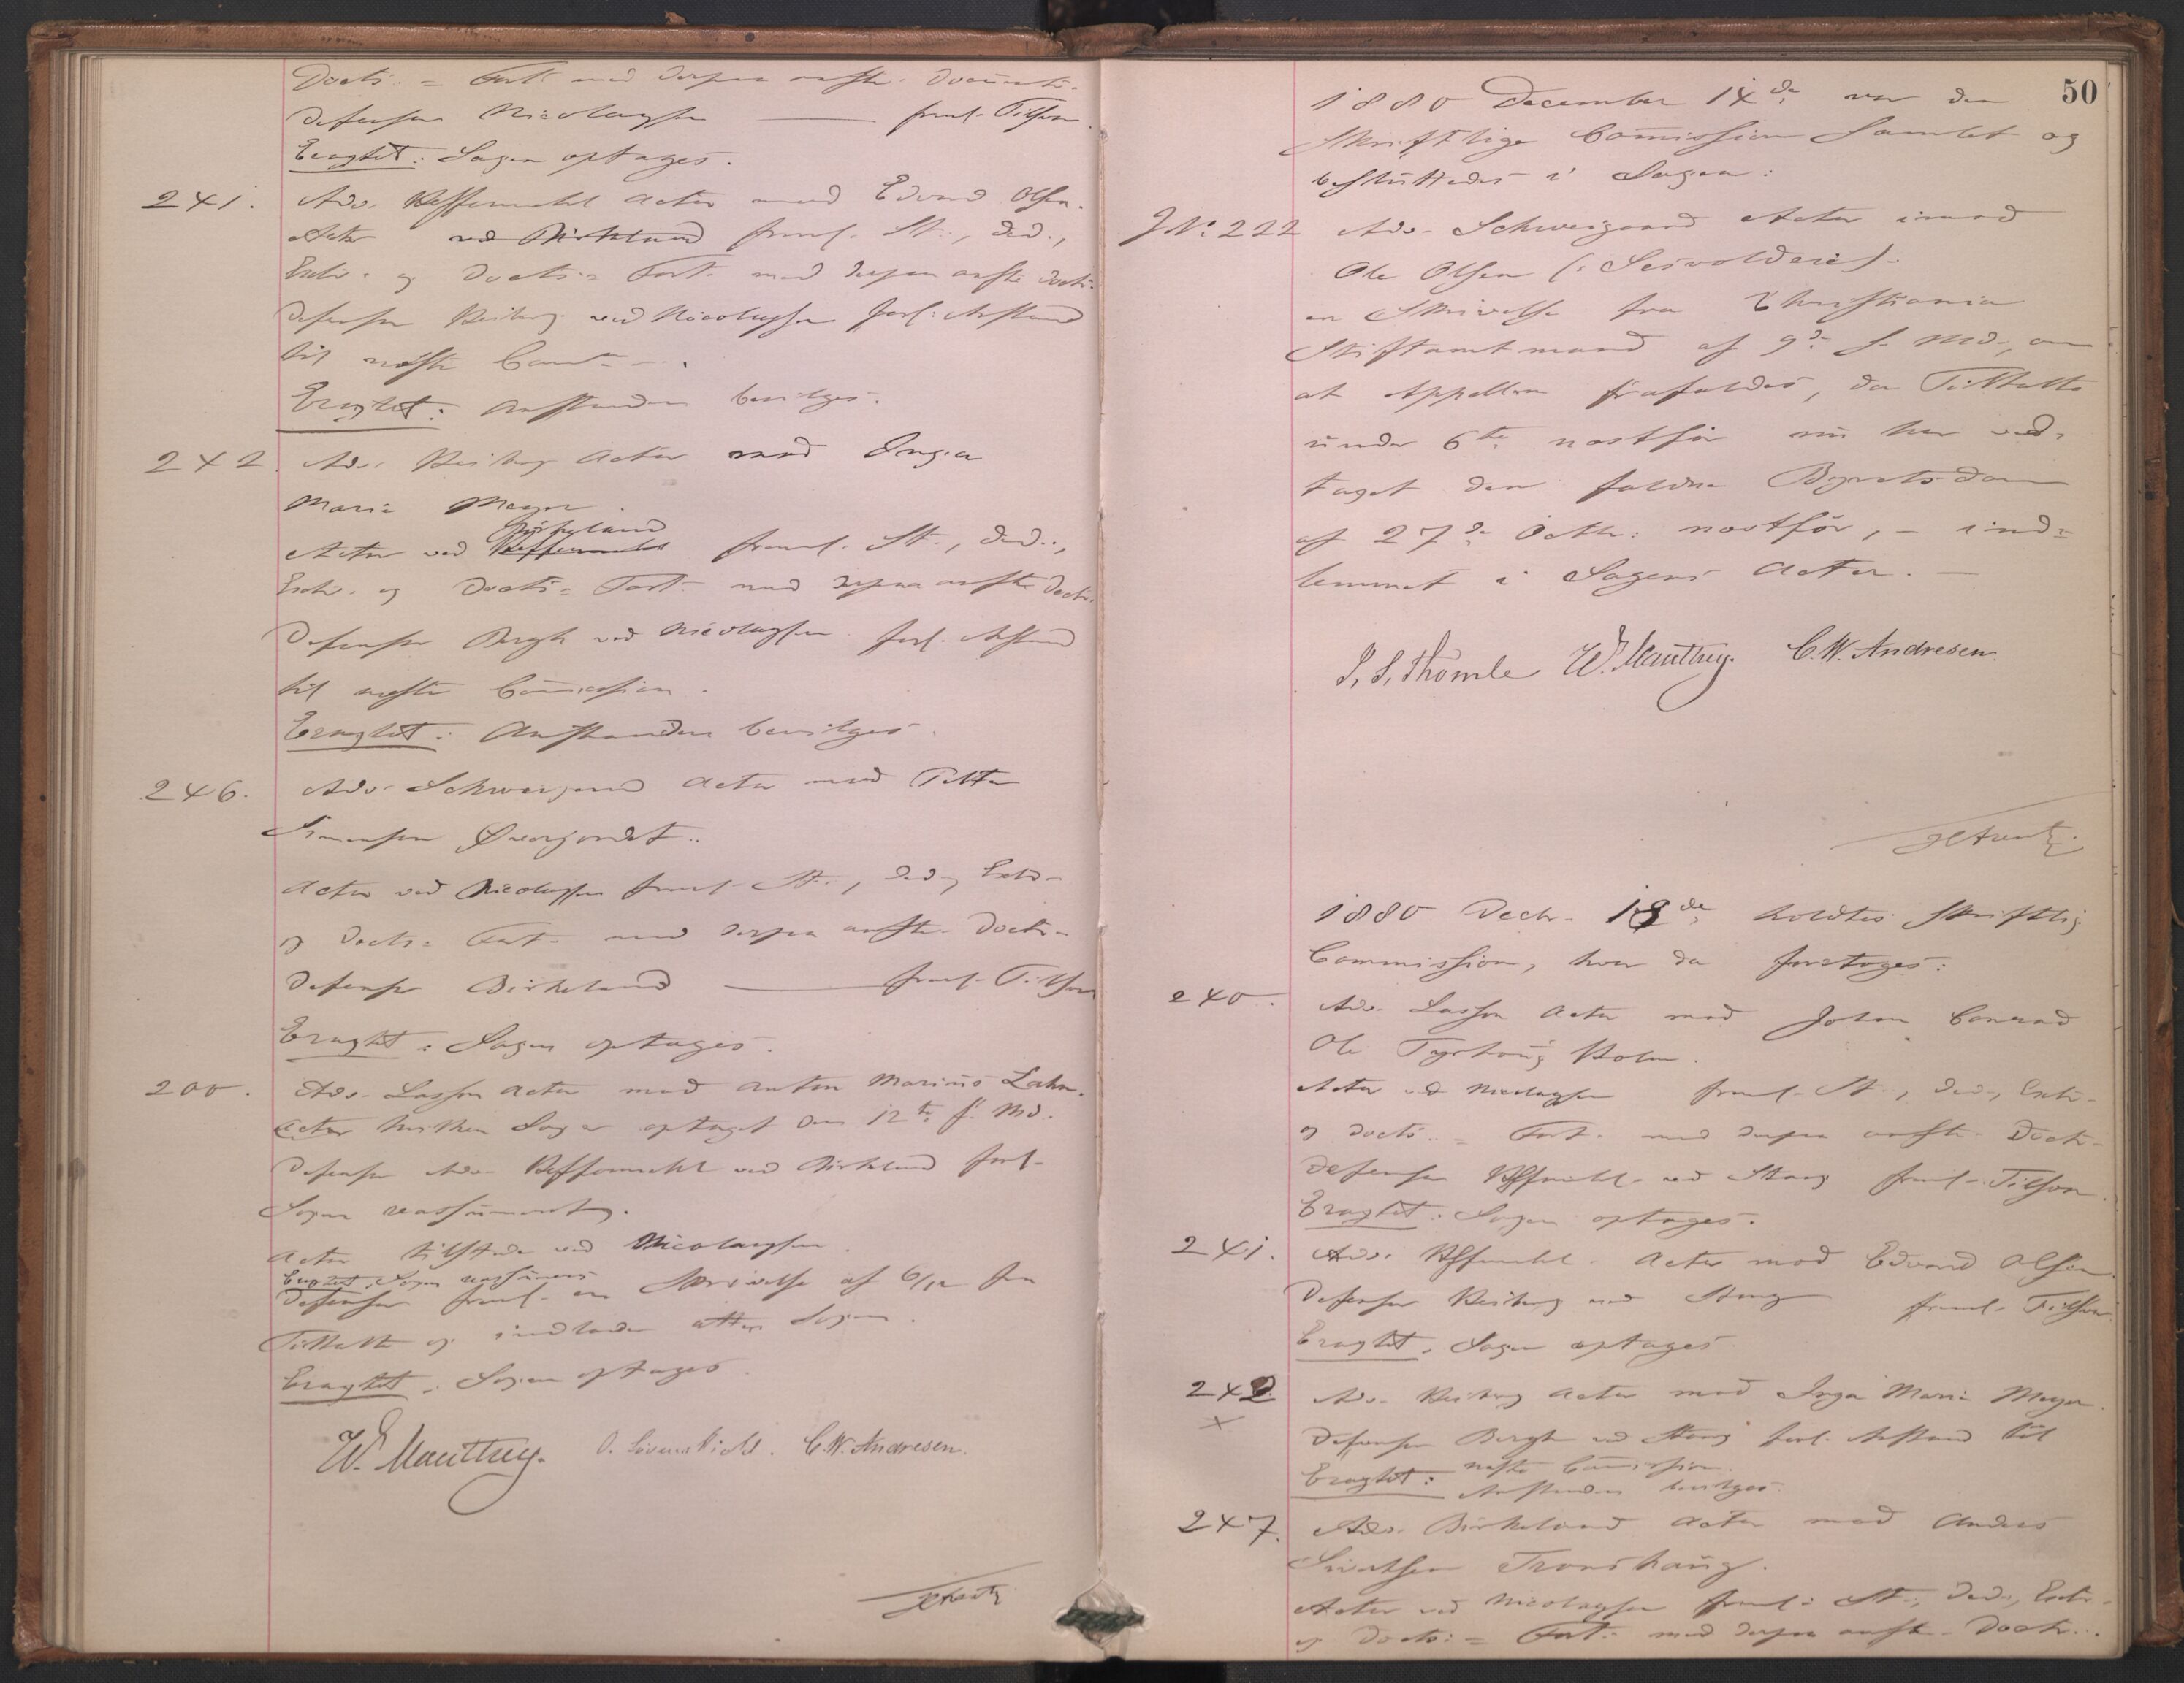 Docts. = Fort. med derpaa anfte. Documti.
Defensor Nicolaysen — freml. Tilsvar.
Eragtet: Sagen optages.
241. Adv. Heffermehl Actor mod Edvard Olsen.
Actor ved Birkeland freml. St., Ded.,
Extr. og Docts = Fort. med derpaa anfte Doctr.
Defensor Heiberg ved Nicolaysen forl. Anstand
til næste Comn.
Eragtet: Anstanden bevilges.
242. Adv. Heiberg Actor mod Inga
Maria Meyer
Birkeland
Actor ved Heffermehl freml. St., Ded.,
Extr. og Docts = Fort. med derpaa anfte Doctr.
Defensor Bergh ved Nicolaysen forl. Anstand
til næste Comission.
Eragtet: Anstanden bevilges.
246. Adv. Schweigaard Actor mod Petter
Simensen
Actor ved Nicolaysen freml. St., Ded., Extr.
og Docts = Fort. med derpaa anfte. Doctr.
Defensor Birkeland — freml. Tilsvar
Eragtet: Sagen optages.
200. Adv. Lasson Actor mod Anton Marius Lahn.
Actor hvilken Sag er optaget den 12te f. Md.
Defensor Adv. Heffermehl ved Birkeland forl.
Sagen reassumeret.
Actor tilstede ved Nicolaysen.
Eragtet: Sagen reassumeres
Defensor freml. en Skrivelse af 6/12 fra
Tiltalte og indlader atter Sagen.
Eragtet: Sagen optages.
W. Manthey. O. Løvenskiold. C.W. Andresen.
50
1880 December 14de var den
Skriftlige Comission Samlet og
besluttedes i Sagen:
J No. 222 Adv. Schweigaard Actor imod
Ole Olsen
en Skrivelse fra Christiania
Stiftamtmand af 9de d. Md., om
at Appellen frafaldes, da Tiltalte
under 6te næstfør nu har ved-
taget den faldne Byretsdom
af 27de Octbr: næstfør, – ind=
lemmet i Sagens Acter. –
J. S. Thomle W. Manthey. C.W. Andresen.
1880 Decbr. 18de holdtes skriftlig
Commission, hvor da foretoges:
240. Adv. Lasson Actor mod Johan Conrad
Ole Holm.
Actor ved Nicolaysen freml. St., Ded., Extr.
og Docts. = Fort. med derpaa anfte. Doctr.
Defensor Heffermehl ved Stang freml. Tilsvar.
Eragtet: Sagen optages.
241. Adv. Heffermehl Actor mod Edvard Olsen.
Defensor Heiberg ved Stang freml. Tilsvar
Eragtet, Sagen optages
242. Adv. Heiberg Actor mod Inga Maria Meyer.
Defensor Bergh ved Stang forl. Anstand til
næste Comission.
Eragtet: Anstanden bevilges.
247. Adv. Birkeland Actor mod Anders
Sivertsen Tronshaug.
Actor ved Nicolaysen freml. St., Ded., Extr.
og Docts: = Fort: med derpaa anfte. Doctr.